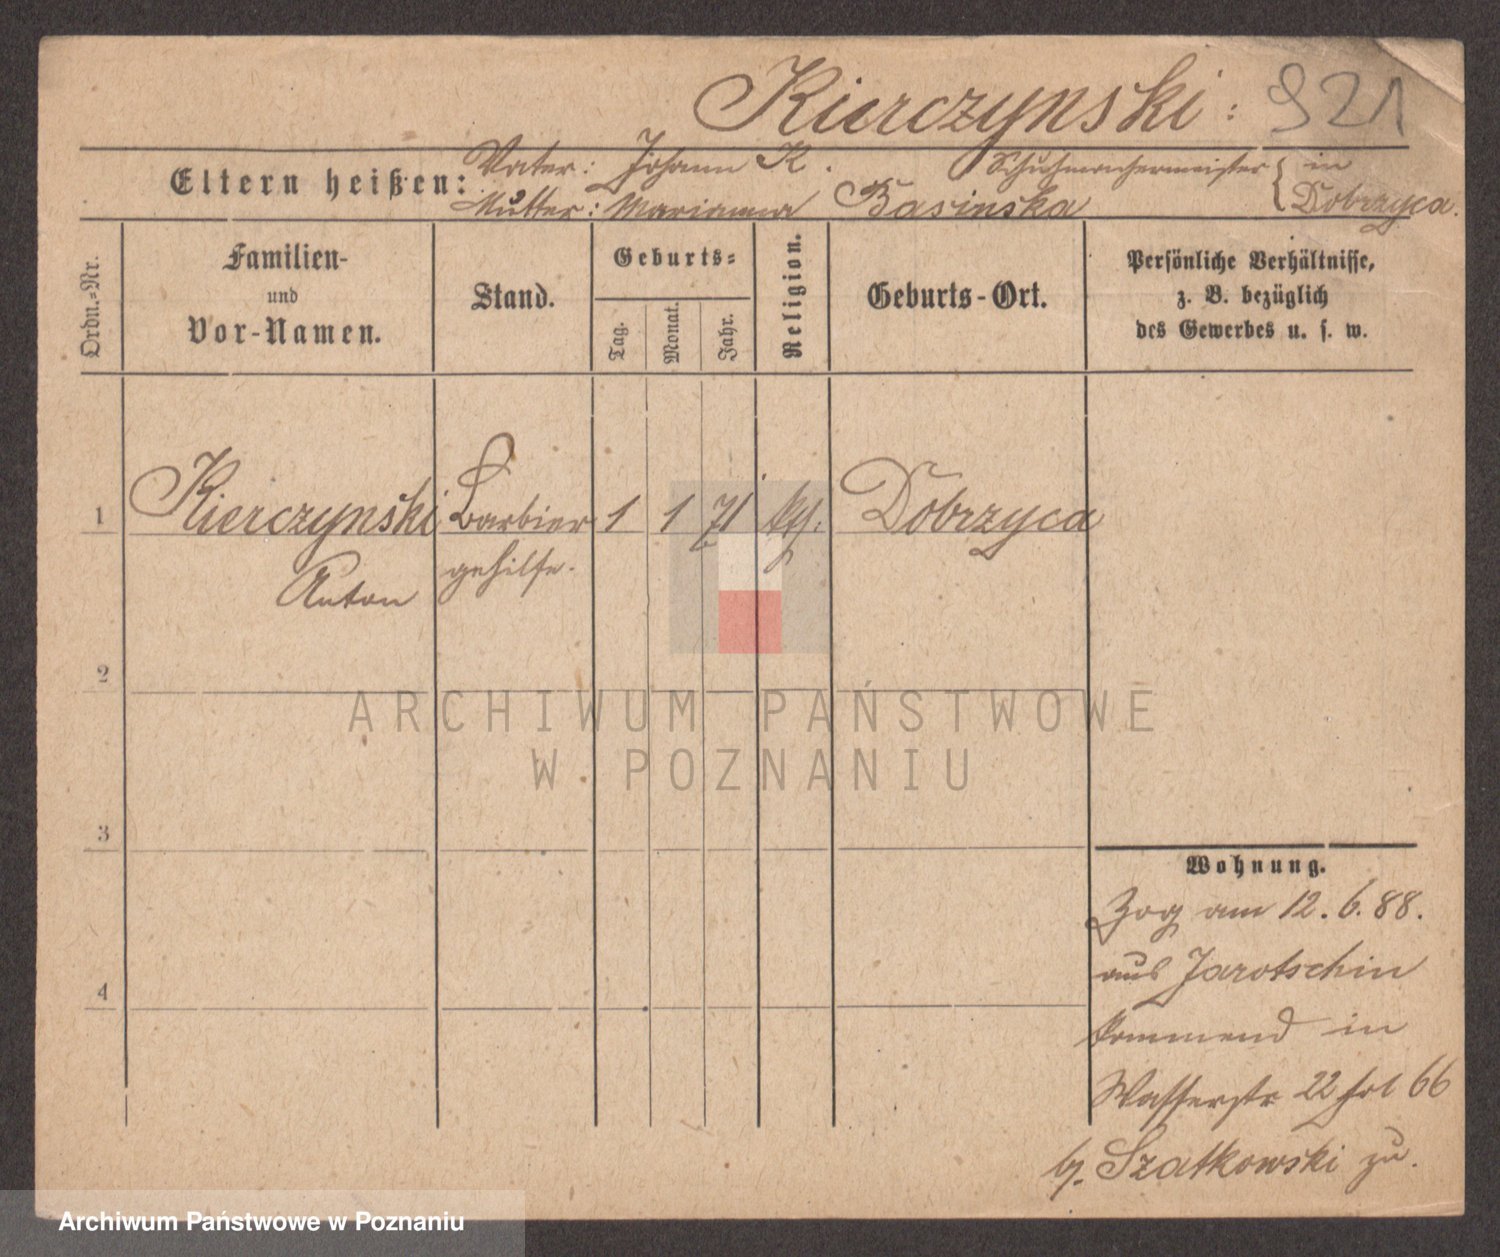 Kierczynski : 921
Eltern heißen: Vater: Johann K. Schuhmachermeister in
Mutter: Marianna Basinska Dobrzyca.
Ordn.-Nr.
Familien-
und
Vor-Namen.
Stand.
Geburts-
Tag.
Monat.
Jahr.
Religion.
Geburts-Ort.
Persönliche Verhältnisse,
z. B. bezüglich
des Gewerbes u. s. w.
1 Kierczynski Barbier 1 1 71 kth. Dobrzyca
Anton gehilfe.
2
3
4
Wohnung.
Zog am 12. 6. 88.
aus Jarotschin
kommend in
Wasserstr 22 fol 66
bj. Szatkowski zu.
ARCHIWUM PAŃSTWOWE
W POZNANIU
Archiwum Państwowe w Poznaniu